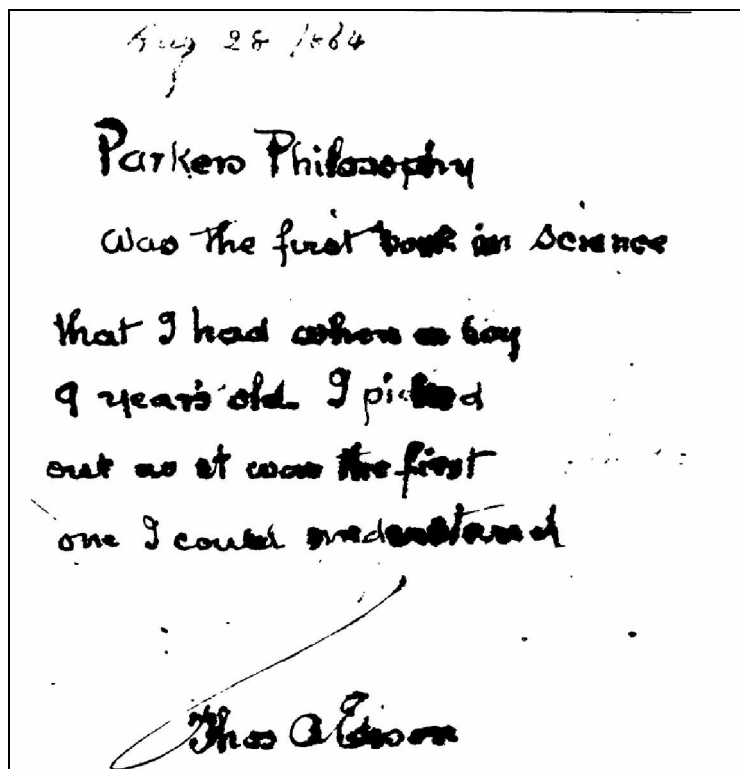 Aug 28 1884
Parkers Philosophy
was the first book in science
that I had when a boy
9 years old I picked
out as it was the first
one I could understand
Thos A Edison